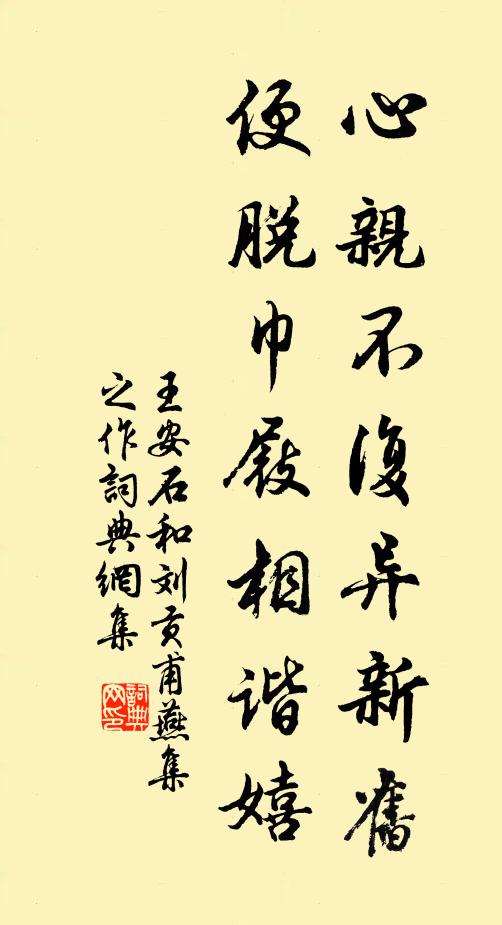 心親不復异新舊
便脱巾屐相谐嬉
王安石和刘贡甫燕集
之作詞典網集
詞典网印